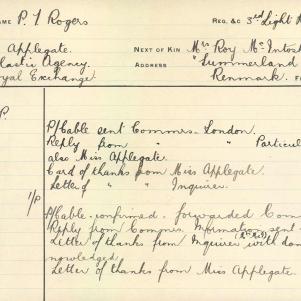 AME P. T Rogers
REG. &C 3rd Light H
Applegate.
lastic Agency.
oyal Exchange.
NEXT OF KIN Mrs Roy McIntosh
ADDRESS "Summerland
Renmark. F
P.
P/Cable sent Commrs. London.
Reply from " Particul
also Miss Applegate.
Card of thanks from Miss Applegate.
Letter of " " Inquirer.
1/p
P/Cable. confirmed. forwarded Com
Reply from Commrs. Information sent
Letter of thanks from Inquirer with don
nowledged
Letter of thanks from Miss Applegate